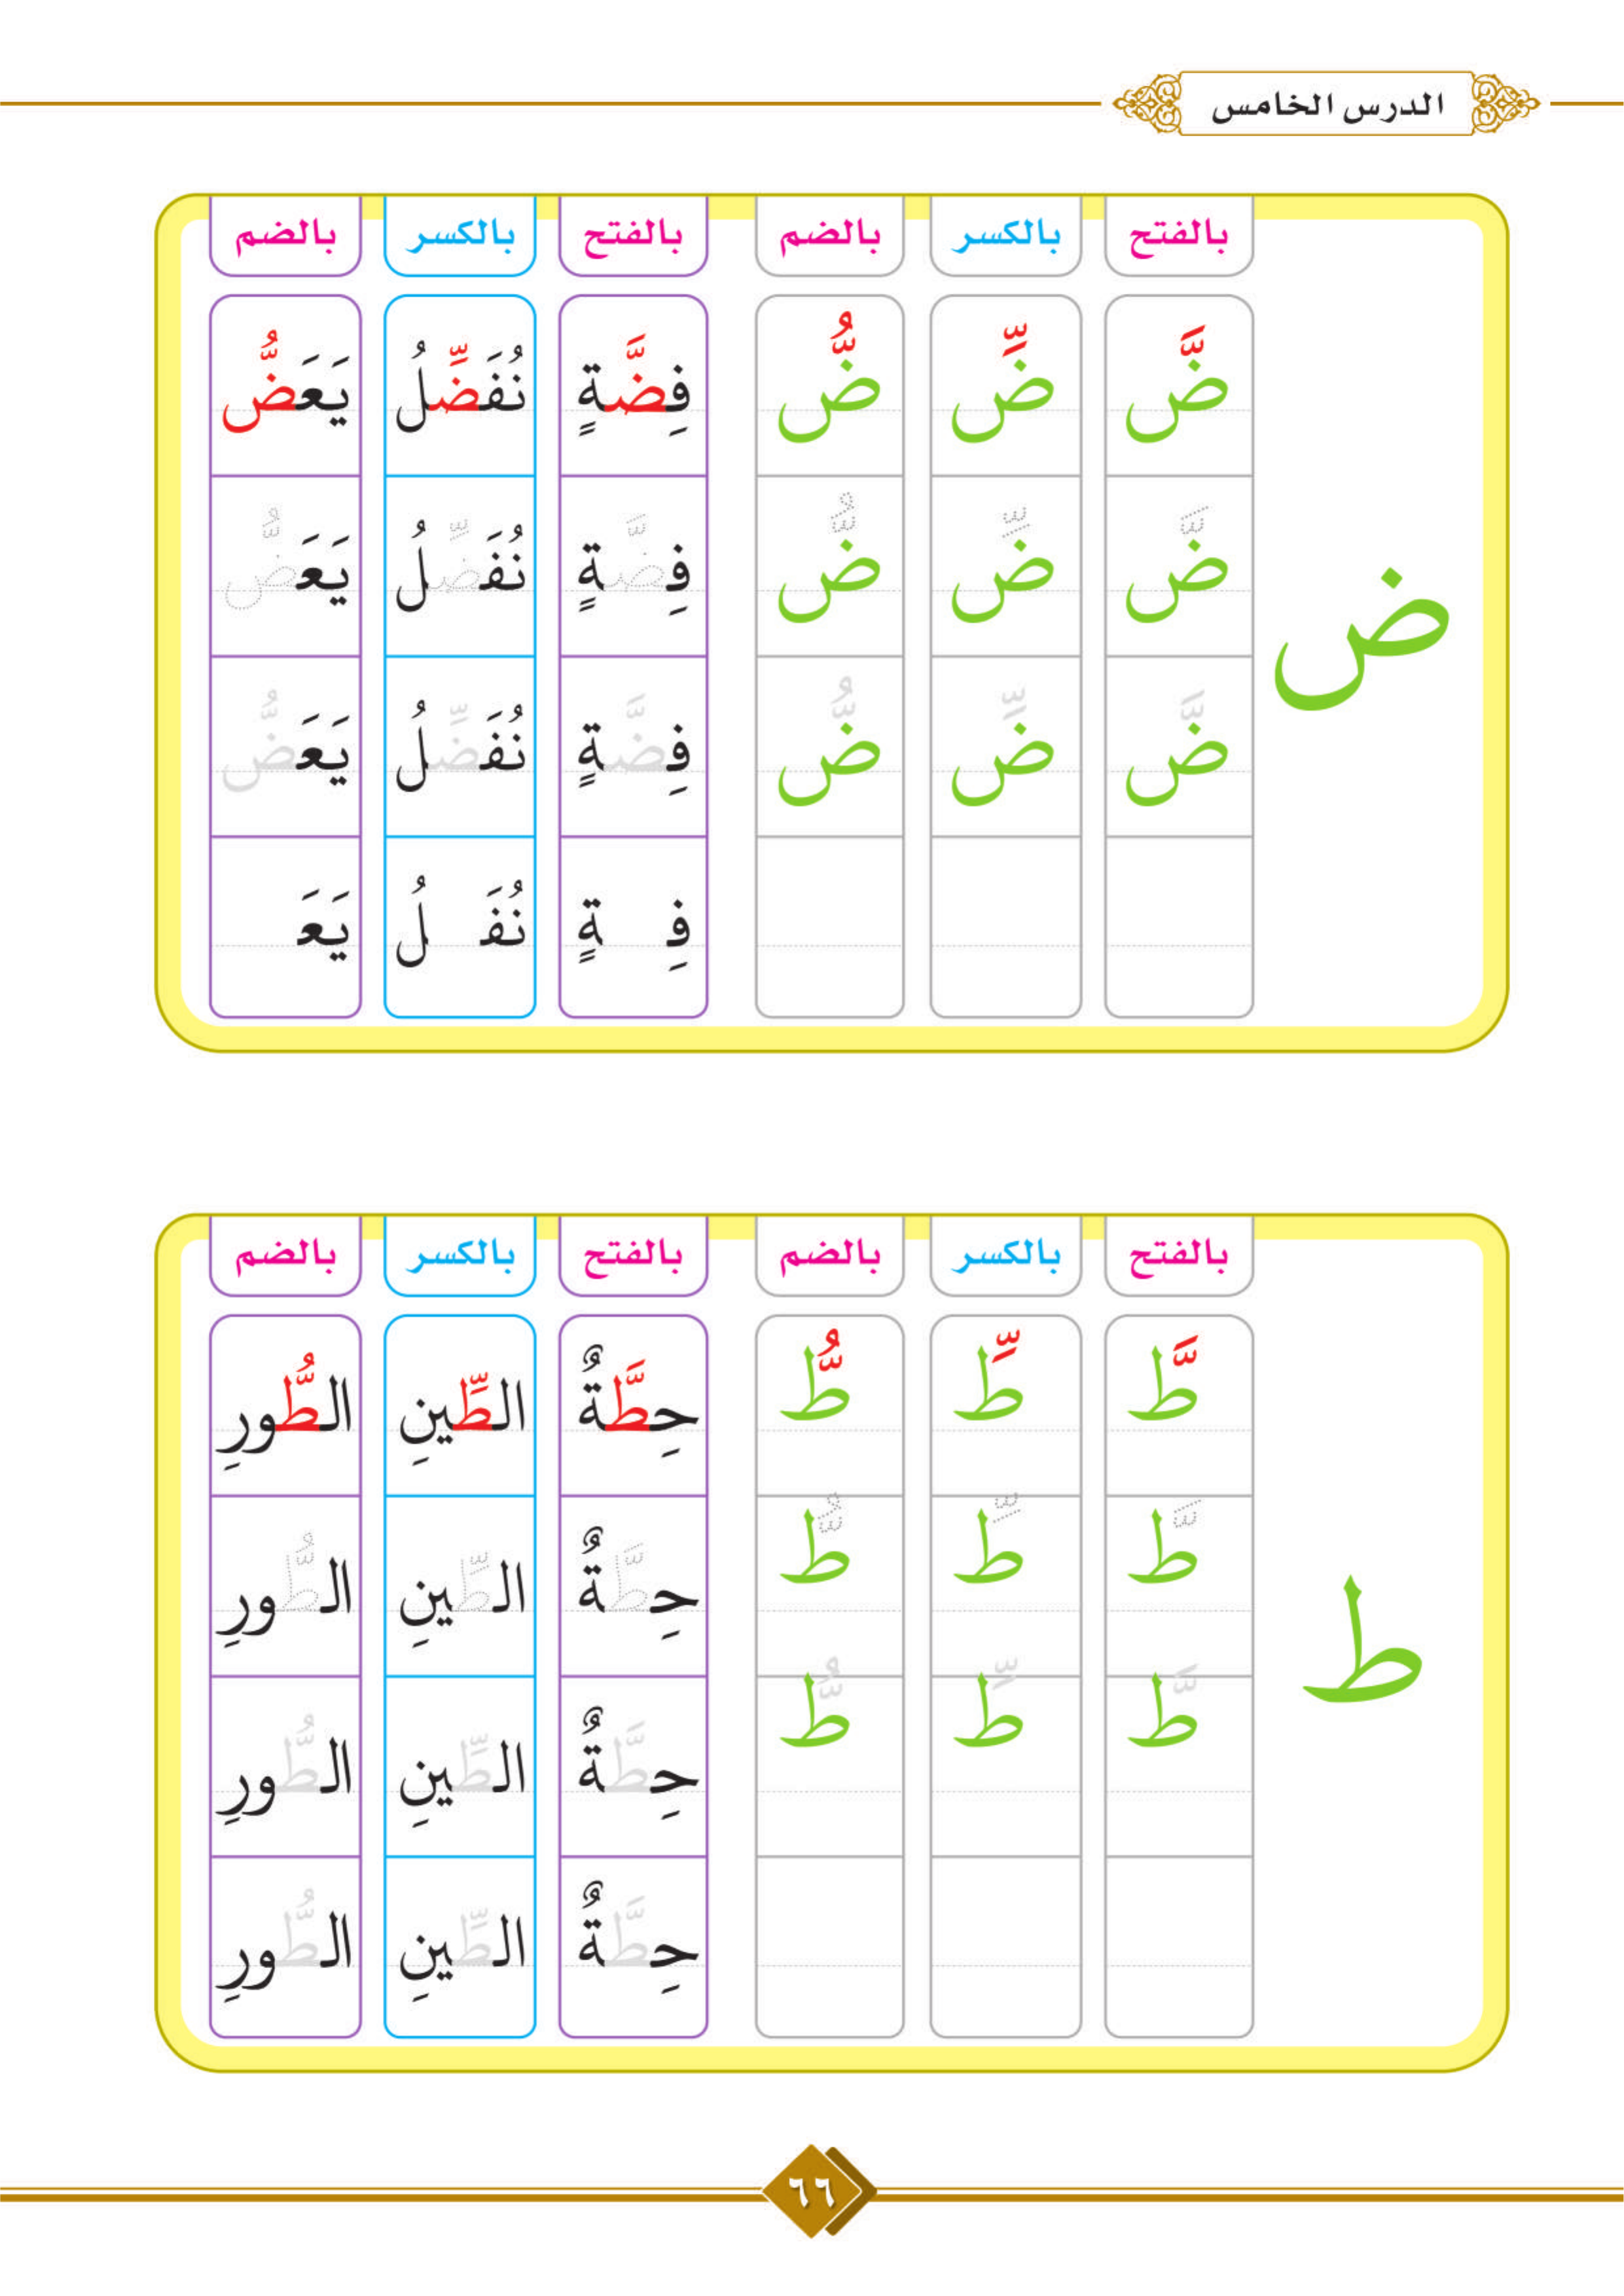 الدرس الخامس
بالفتح بالكسر بالضم بالفتح بالكسر بالضم
ضَّ ضِّ ضُّ فِضَّةٍ نُفَضِّلُ يَعَضُّ
ضَّ ضِّ ضُّ فِضَّةٍ نُفَضِّلُ يَعَضُّ
ض
ضَّ ضِّ ضُّ فِضَّةٍ نُفَضِّلُ يَعَضُّ
فِـ ـةٍ نُفَـ ـلُ يَعَـ
بالفتح بالكسر بالضم بالفتح بالكسر بالضم
طَّ طِّ طُّ حِطَّةٌ الطِّينِ الطُّورِ
طَّ طِّ طُّ حِطَّةٌ الطِّينِ الطُّورِ
ط
طَّ طِّ طُّ حِطَّةٌ الطِّينِ الطُّورِ
حِطَّةٌ الطِّينِ الطُّورِ
٦٦